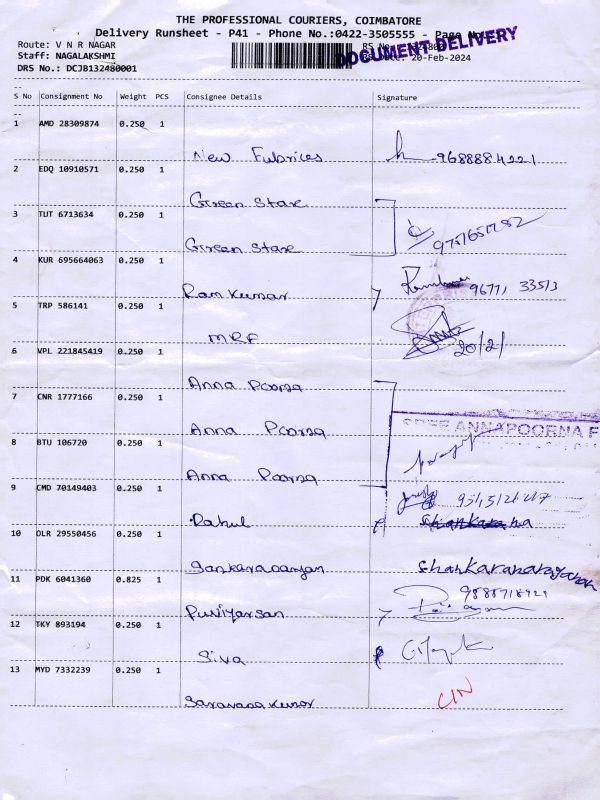 THE PROFESSIONAL COURIERS, COIMBATORE
Delivery Runsheet - P41 - Phone No.:0422-3505555 - Page No.:
DOCUMENT DELIVERY
Route: V N R NAGAR
Staff: NAGALAKSHMI
DRS No.: DCJB132480001
20-Feb-2024
S No Consignment No Weight PCS Consignee Details Signature
1 AMD 28309874 0.250 1
New Fubrices 9688884221
2 EDQ 10910571 0.250 1
Green Stare
3 TUT 6713634 0.250 1
Green Stare
4 KUR 695664063 0.250 1
Ram Kumar 96771 33513
5 TRP 586141 0.250 1
MRF 20/2/
6 VPL 221845419 0.250 1
Anna Poorna
7 CNR 1777166 0.250 1
Anna Poorna
SREE ANNAPOORNA F
8 BTU 106720 0.250 1
Anna Poorna
9 CMD 70149403 0.250 1
Rahul
10 DLR 29550456 0.250 1
Sankaranarayan Shankaranarayanan
11 PDK 6041360 0.825 1
Puviyarsan
12 TKY 893194 0.250 1
Siva
13 MYD 7332239 0.250 1
Saravana kumar